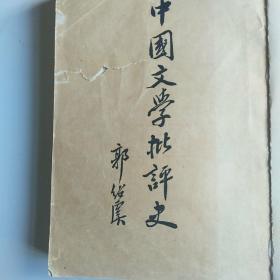 中國文学批評史
郭绍虞